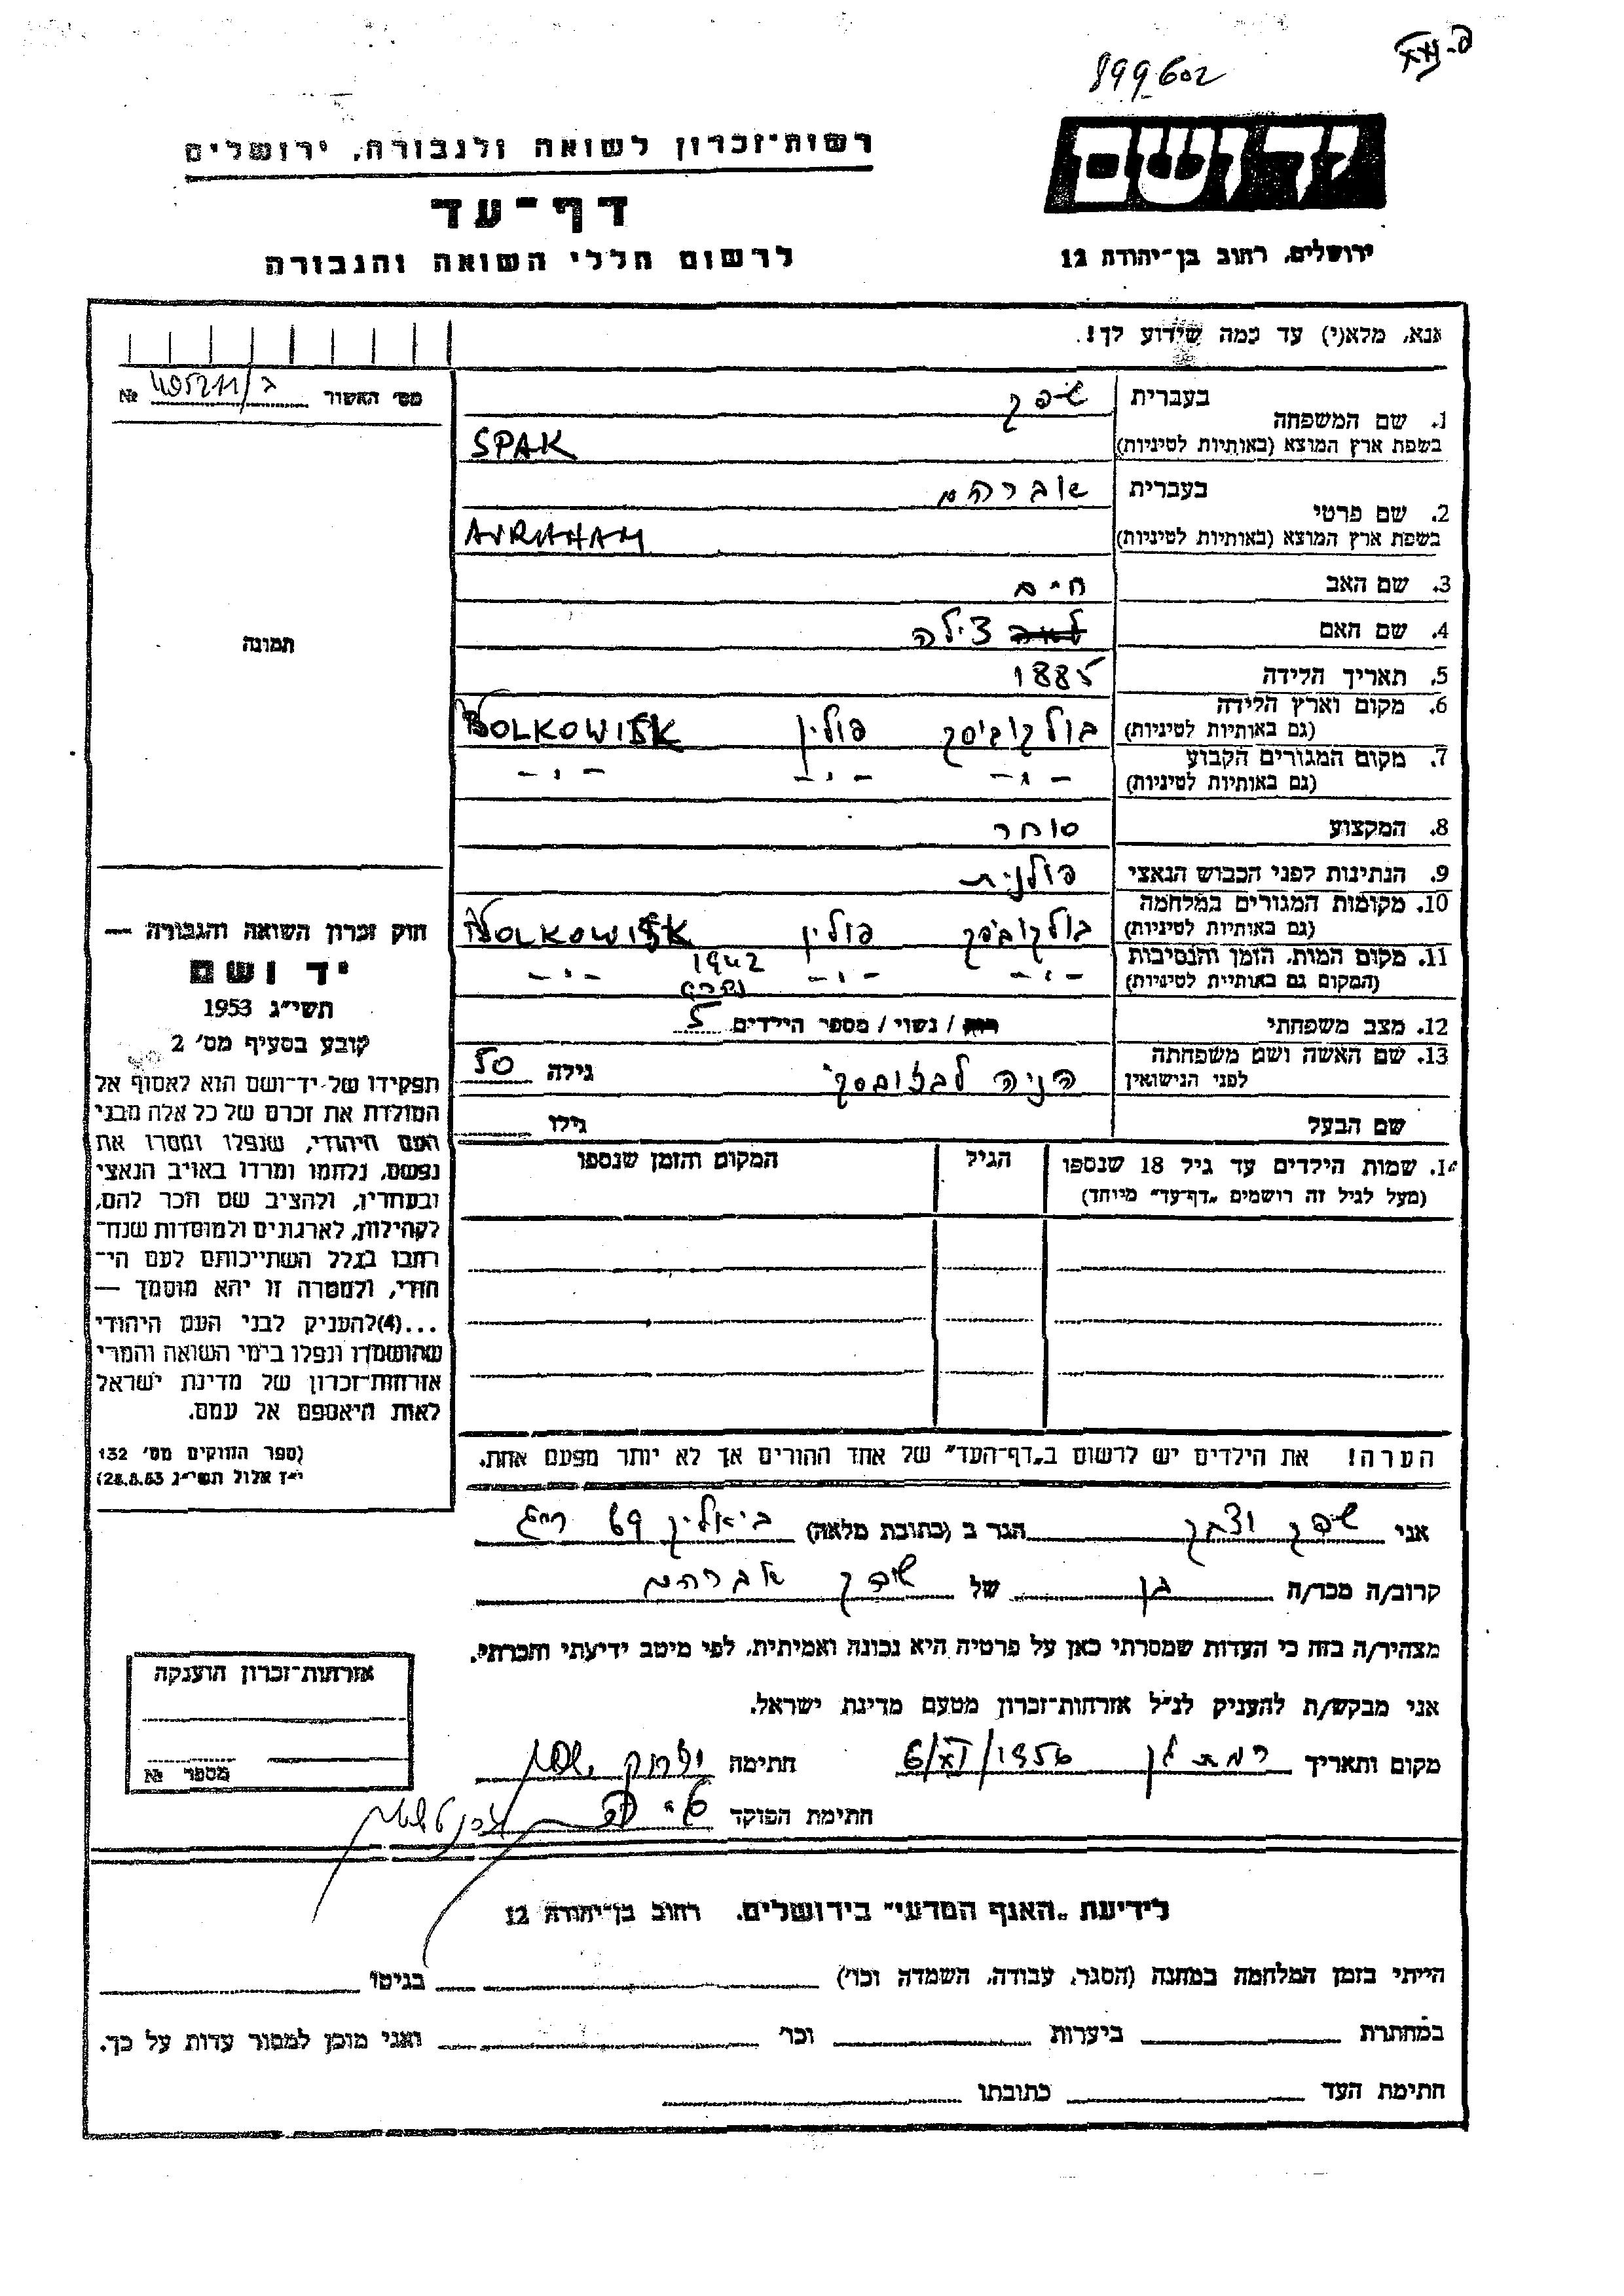 899602
רשות-זכרון לשואה ולגבורה, ירושלים
יד ושם
דף-עד
לרשום חללי השואה והגבורה
ירושלים, רחוב בן-יהודה 12
אנא, מלא(י) עד כמה שידוע לך!
מס׳ האשור № 405211/ב
1. שם המשפחה
בעברית שפק
בשפת ארץ המוצא (באותיות לטיניות) SPAK
2. שם פרטי
בעברית אברהם
בשפת ארץ המוצא (באותיות לטיניות) AVRAHAM
3. שם האב חיים
4. שם האם צילה
תמונה
5. תאריך הלידה 1885
6. מקום וארץ הלידה
(גם באותיות לטיניות) בולקוביסק פולין WOLKOWISK
7. מקום המגורים הקבוע
(גם באותיות לטיניות) -"- -"- -"-
8. המקצוע סוחר
9. הנתינות לפני הכבוש הנאצי פולנית
10. מקומות המגורים במלחמה
(גם באותיות לטיניות) בולקוביסק פולין WOLKOWISK
11. מקום המות, הזמן והנסיבות
(המקום גם באותיות לטיניות) -"- -"- 1942 נהרג -"-
12. מצב משפחתי רווק / נשוי / מספר הילדים 5
13. שם האשה ושם משפחתה
לפני הנישואין הניה גילה 50
שם הבעל גילו
14. שמות הילדים עד גיל 18 שנספו
(מעל לגיל זה רושמים „דף-עד" מיוחד)
הגיל
המקום והזמן שנספו
הערה! את הילדים יש לרשום ב„דף-העד" של אחד ההורים אך לא יותר מפעם אחת.
חוק זכרון השואה והגבורה —
יד ושם
תשי״ג 1953
קובע בסעיף מס׳ 2
תפקידו של יד-ושם הוא לאסוף אל
המולדת את זכרם של כל אלה מבני
העם היהודי, שנפלו ומסרו את
נפשם, נלחמו ומרדו באויב הנאצי
ובעוזריו, ולהציב שם וזכר להם,
לקהילות, לארגונים ולמוסדות שנח-
רבו בגלל השתייכותם לעם הי-
הודי, ולמטרה זו יהא מוסמך —
...(4) להעניק לבני העם היהודי
שהושמדו ונפלו בימי השואה והמרי
אזרחות-זכרון של מדינת ישראל
לאות היאספם אל עמם.
(ספר החוקים מס׳ 132
י״ז אלול תשי״ג 28.8.53)
אני שפק יצחק הגר ב (כתובת מלאה) ביאליק 69 ר״ג
קרוב/ה מכר/ה בן של שפק אברהם
מצהיר/ה בזה כי העדות שמסרתי כאן על פרטיה היא נכונה ואמיתית, לפי מיטב ידיעתי והכרתי.
אני מבקש/ת להעניק לנ״ל אזרחות-זכרון מטעם מדינת ישראל.
מקום ותאריך רמת גן 6/XI/1956 חתימה יצחק שפק
חתימת הפוקד
אזרחות-זכרון הוענקה
מספר №
לידיעת „האגף המדעי" בירושלים, רחוב בן-יהודה 12
הייתי בזמן המלחמה במחנה (הסגר, עבודה, השמדה וכו׳) בגיטו
במחתרת ביערות וכו׳ ואני מוכן למסור עדות על כך.
חתימת העד כתובתו